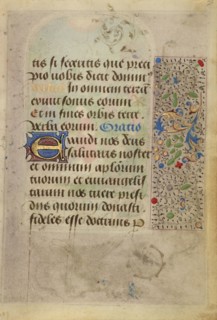 tis si feceritis que preci
pio vobis dicit dominus
In omnem terram
exivit sonus eorum
Et in fines orbis terre
verba eorum. Oratio
Exaudi nos deus
salutaris noster
et omnium aplorum
tuorum et euuangelis
tarum nos tuere presi
diis quorum donasti
fideles esse doctrinis P